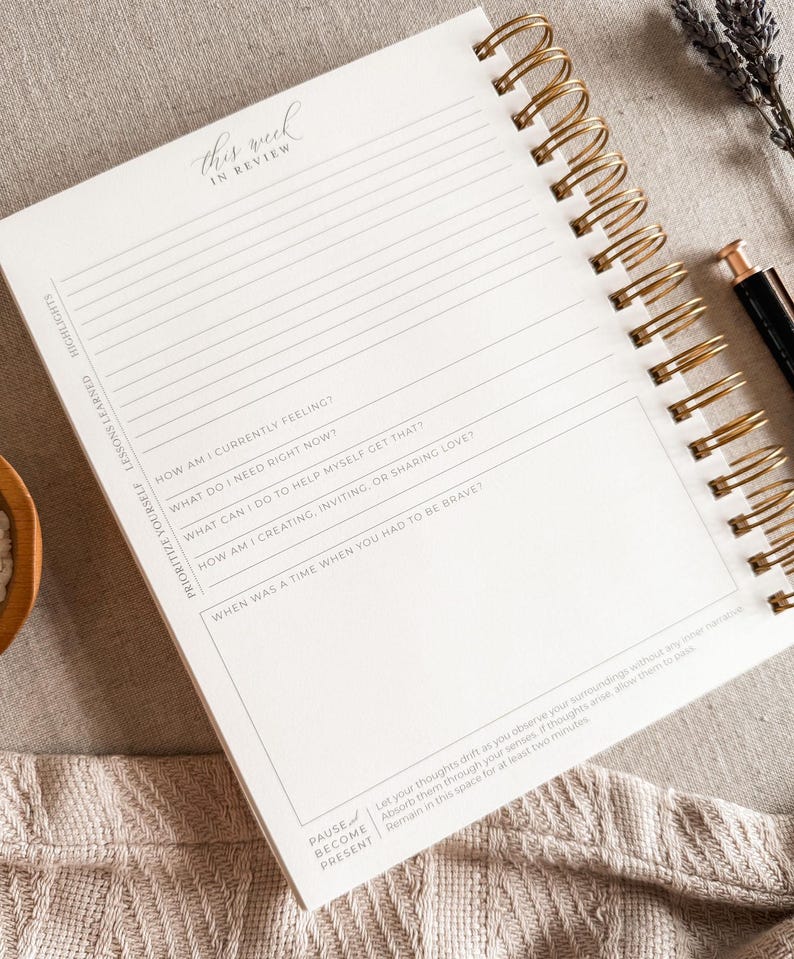 this week
IN REVIEW
HIGHLIGHTS
LESSONS LEARNED
PRIORITIZE YOURSELF
HOW AM I CURRENTLY FEELING?
WHAT DO I NEED RIGHT NOW?
WHAT CAN I DO TO HELP MYSELF GET THAT?
HOW AM I CREATING, INVITING, OR SHARING LOVE?
WHEN WAS A TIME WHEN YOU HAD TO BE BRAVE?
PAUSE and
BECOME
PRESENT
Let your thoughts drift as you observe your surroundings without any inner narrative.
Absorb them through your senses. If thoughts arise, allow them to pass.
Remain in this space for at least two minutes.